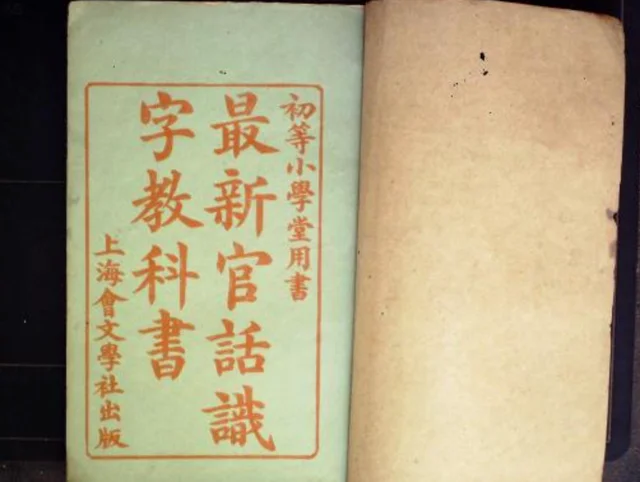 初等小學堂用書
最新官話識
字教科書
上海會文學社出版